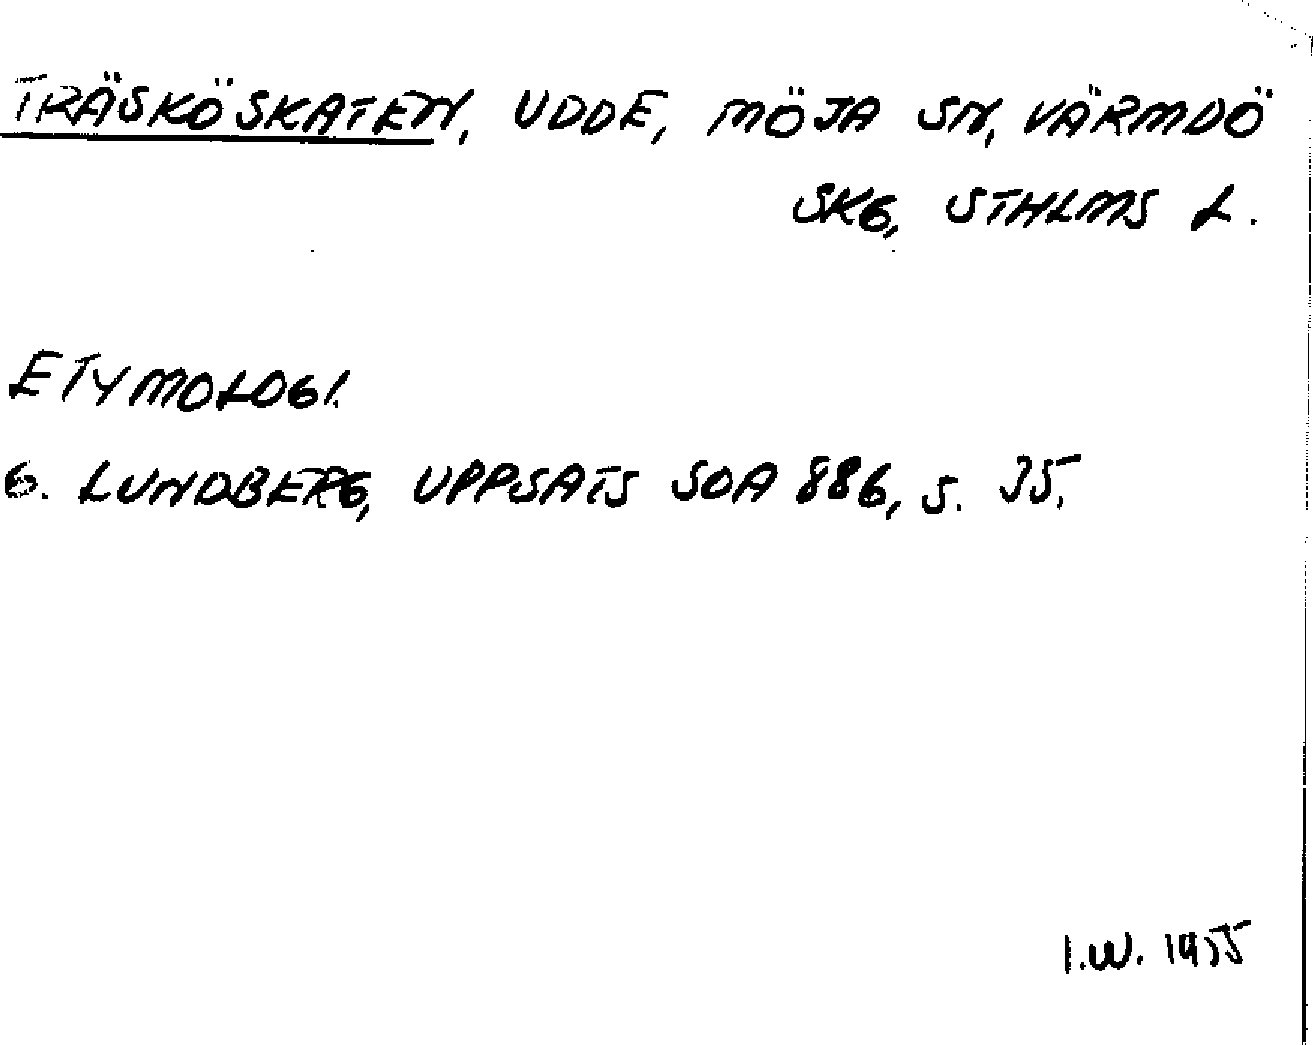 TRÄSKÖSKATEN, UDDE, MÖJA SN, VÄRMDÖ
SKG, STHLMS L.
ETYMOLOGI.
G. LUNDBERG, UPPSATS SOA 886, S. 35.
I.W. 1955